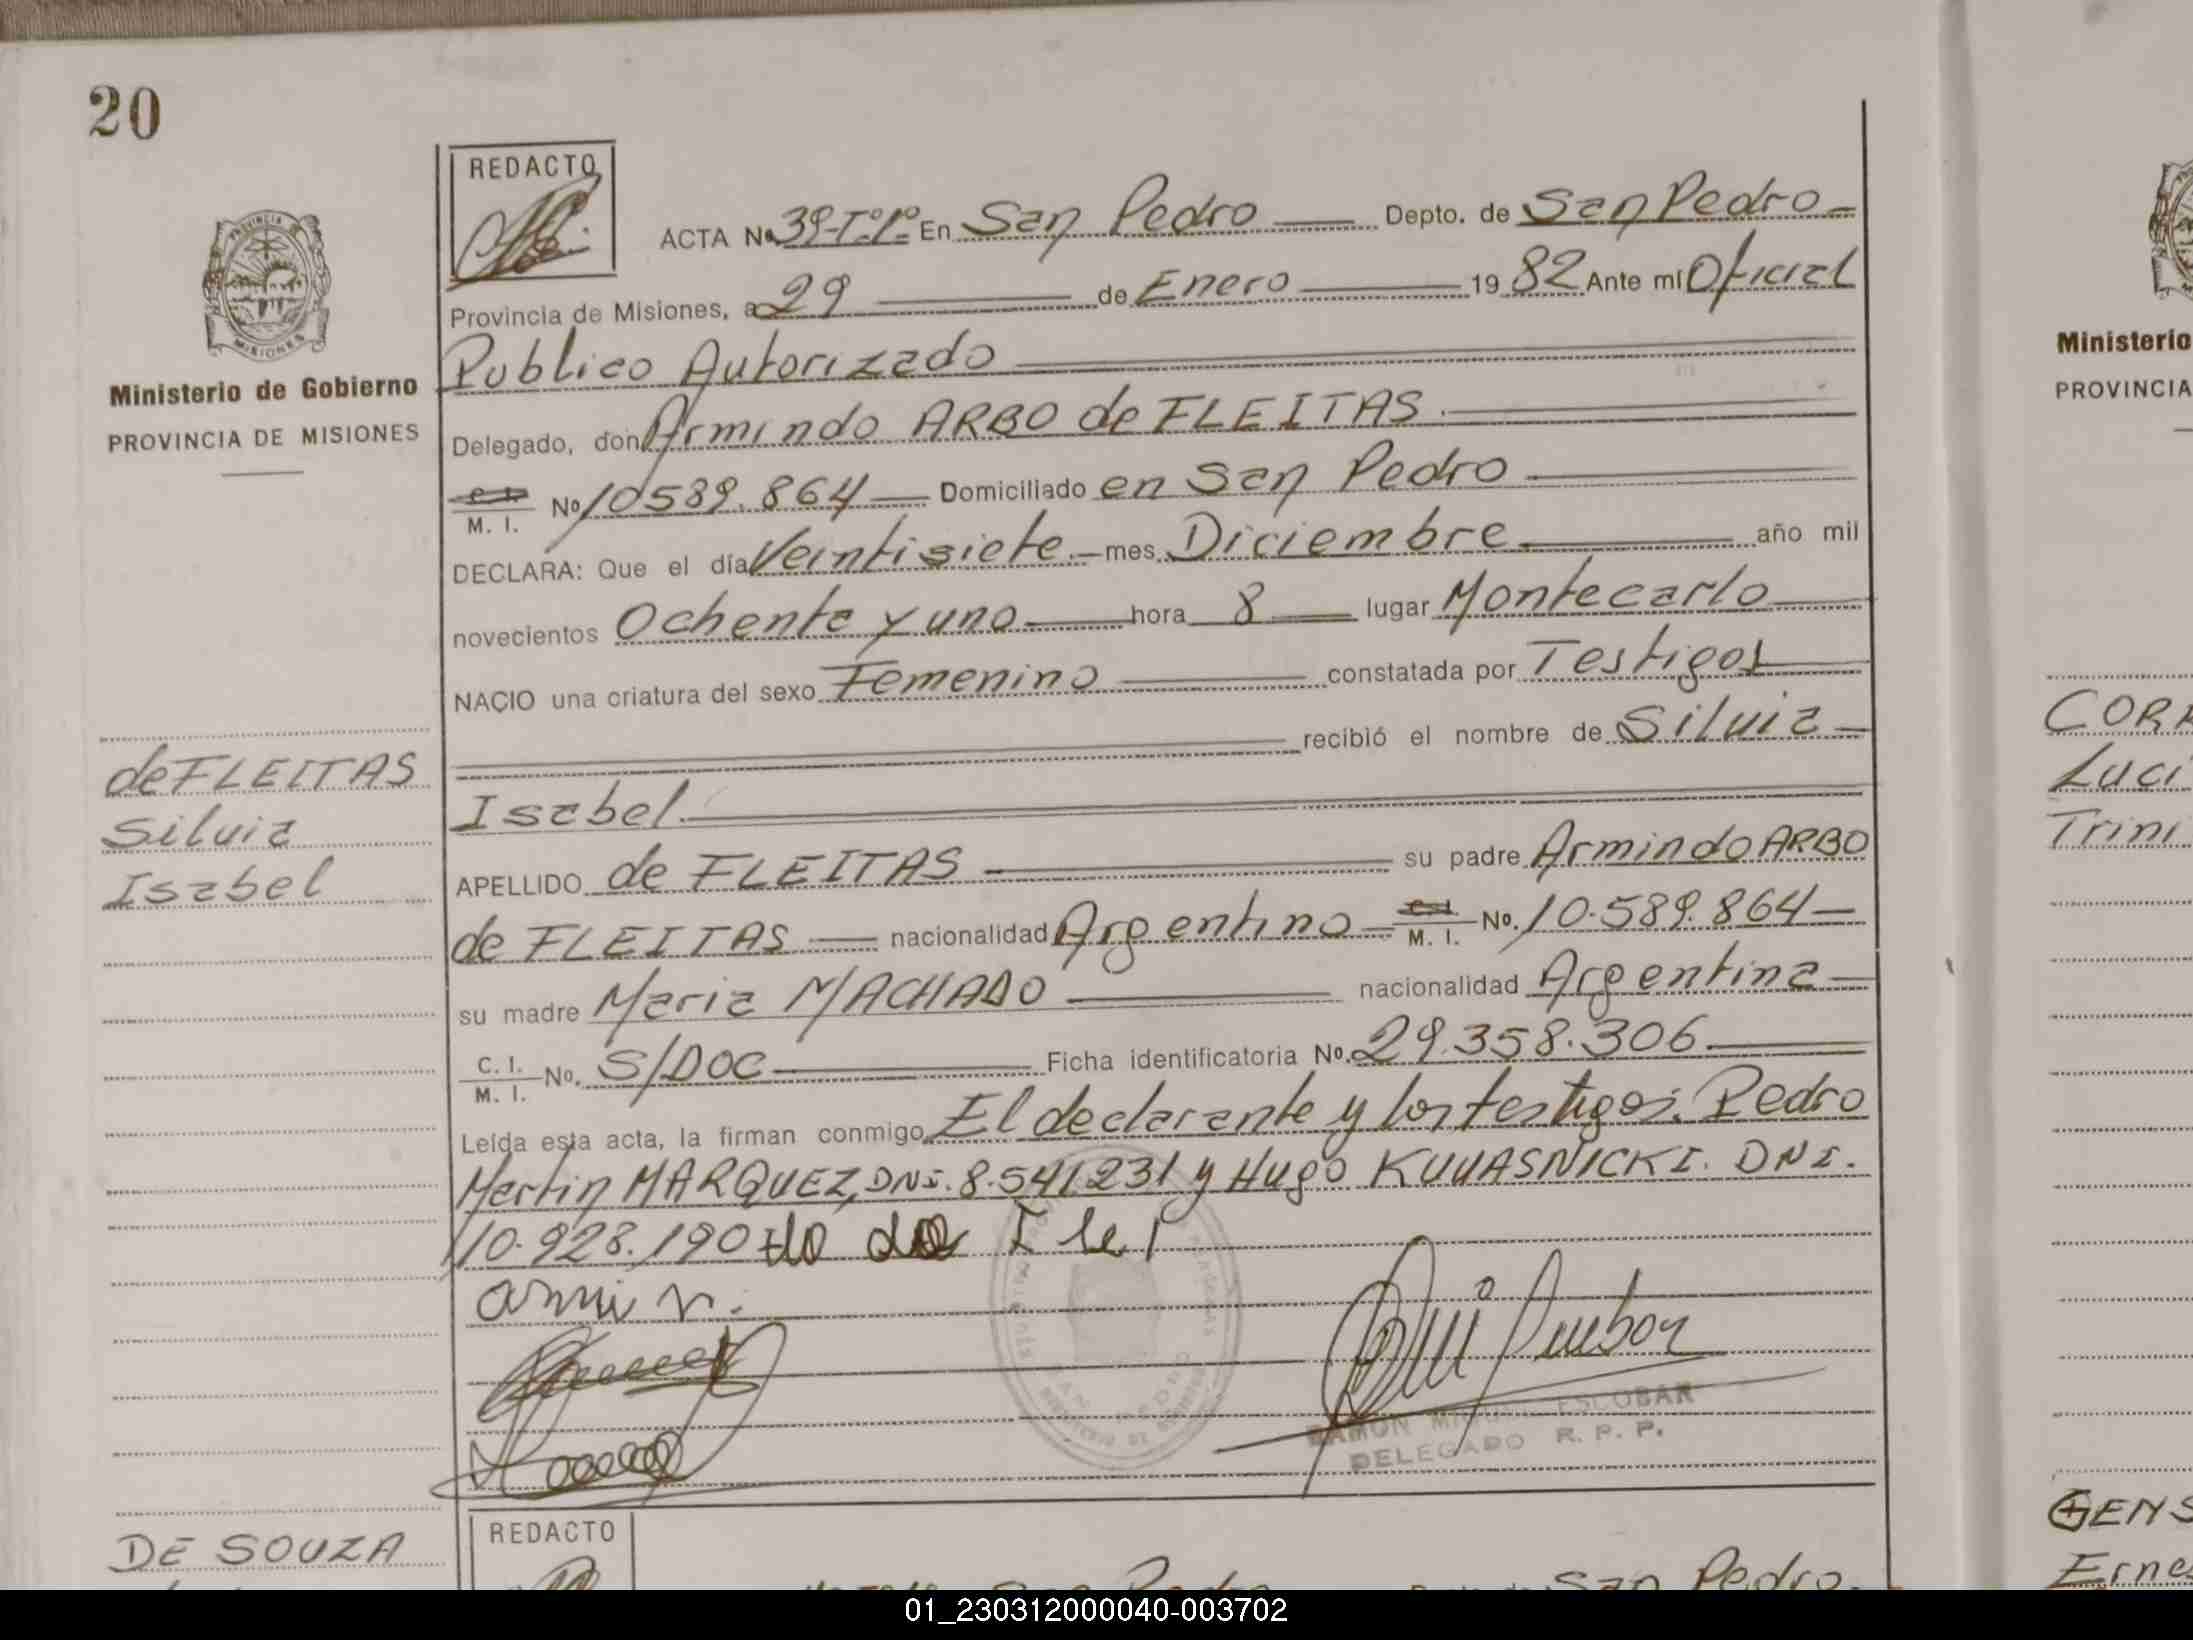 20
REDACTO
ACTA Nº 39-Tº1º En San Pedro Depto. de San Pedro
Provincia de Misiones, a 29 de Enero 1982 Ante mí Oficial
Publico Autorizado
Delegado, don Armindo ARBO de FLEITAS.
C. I.
M. I. Nº 10589.864 Domiciliado en San Pedro
DECLARA: Que el día Veintisiete mes Diciembre año mil
novecientos Ochenta y uno hora 8 lugar Montecarlo
NACIO una criatura del sexo Femenino constatada por Testigos
recibió el nombre de Silvia
Isabel.
APELLIDO de FLEITAS su padre Armindo ARBO
de FLEITAS nacionalidad Argentino C. I. M. I. Nº. 10.589.864
su madre Maria MACHADO nacionalidad Argentina
C. I.
M. I. Nº. S/DOC Ficha identificatoria Nº. 29.358.306
Leída esta acta, la firman conmigo El declarante y los testigos: Pedro
Martin MARQUEZ, DNI. 8.541.231 y Hugo KUUASNICKI. DNI.
10.928.190
RAMON MIGUEL ESCOBAR
DELEGADO R. P. P.
PROVINCIA DE
MISIONES
Ministerio de Gobierno
PROVINCIA DE MISIONES
de FLEITAS
Silvia
Isabel
DE SOUZA
REDACTO
San Pedro San Pedro
Ministerio
PROVINCIA
CORR
Luci
Trini
GENS
Ernes
01_230312000040-003702